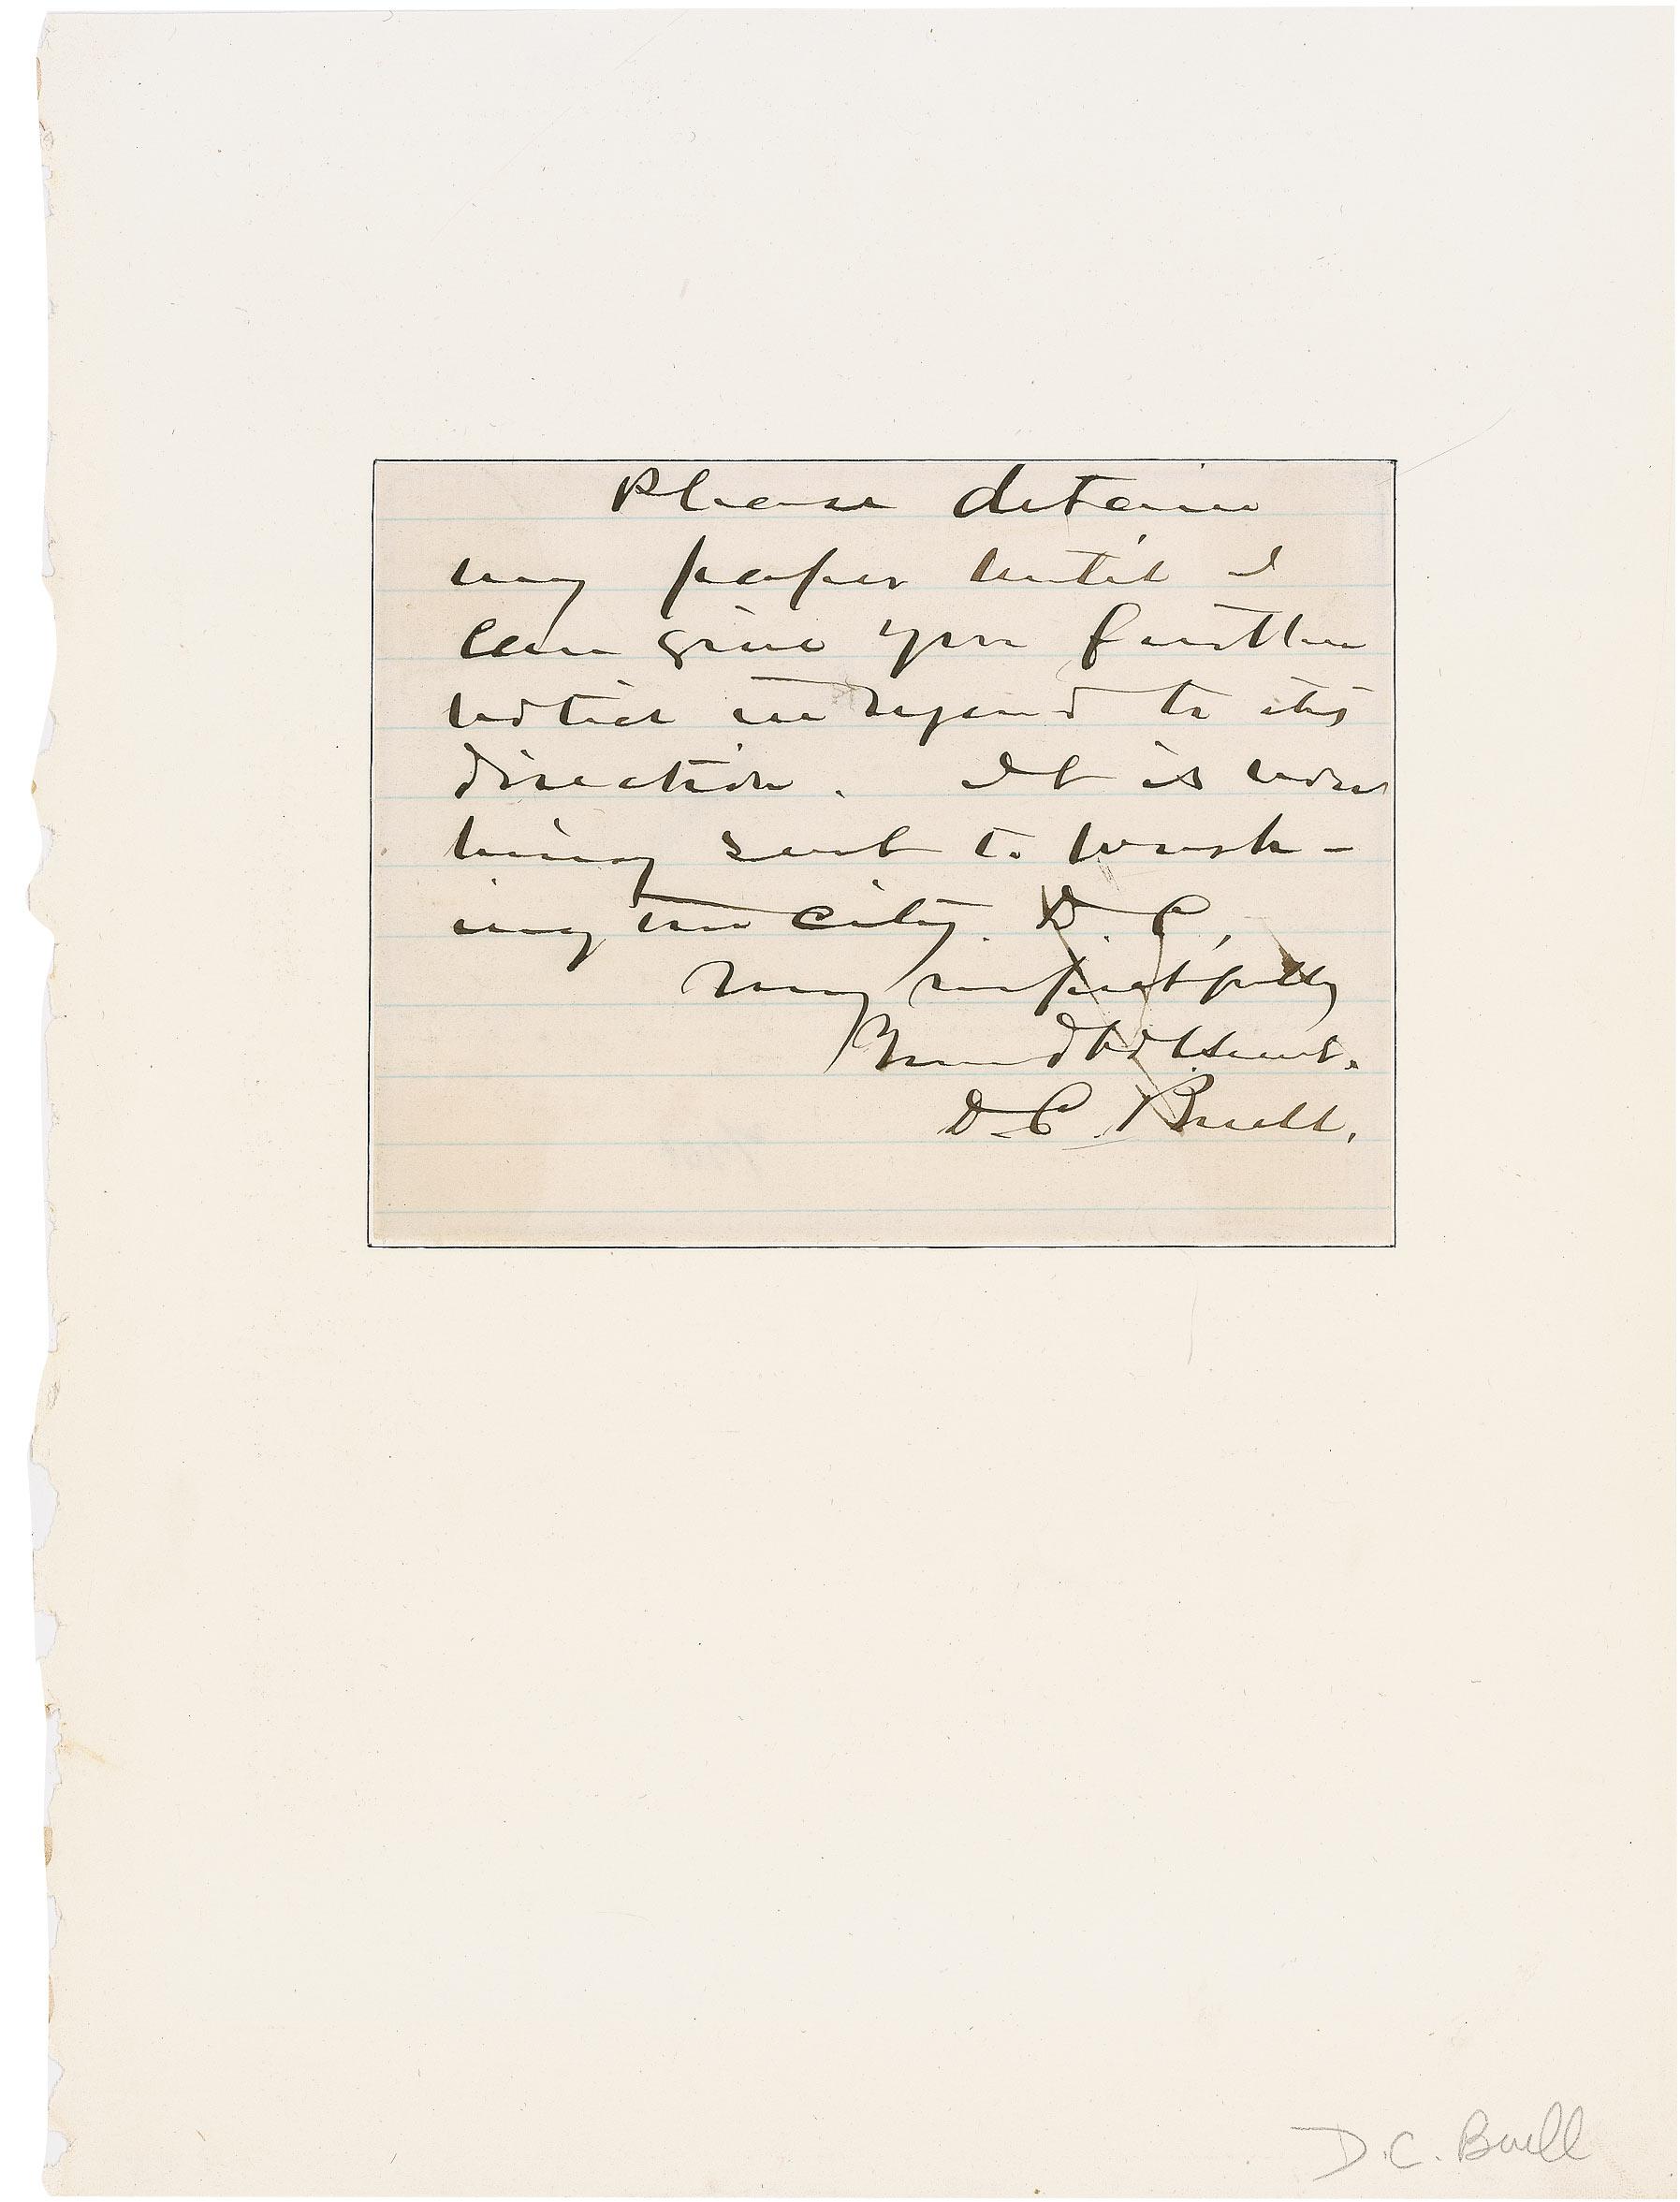 Please detain
my paper until I
can give you further
notice in regard to its
direction. It is now
being sent to Wash-
ington City. D. C,
Very respectfully
Your obt Servt.
D. C. Buell.
D. C. Buell